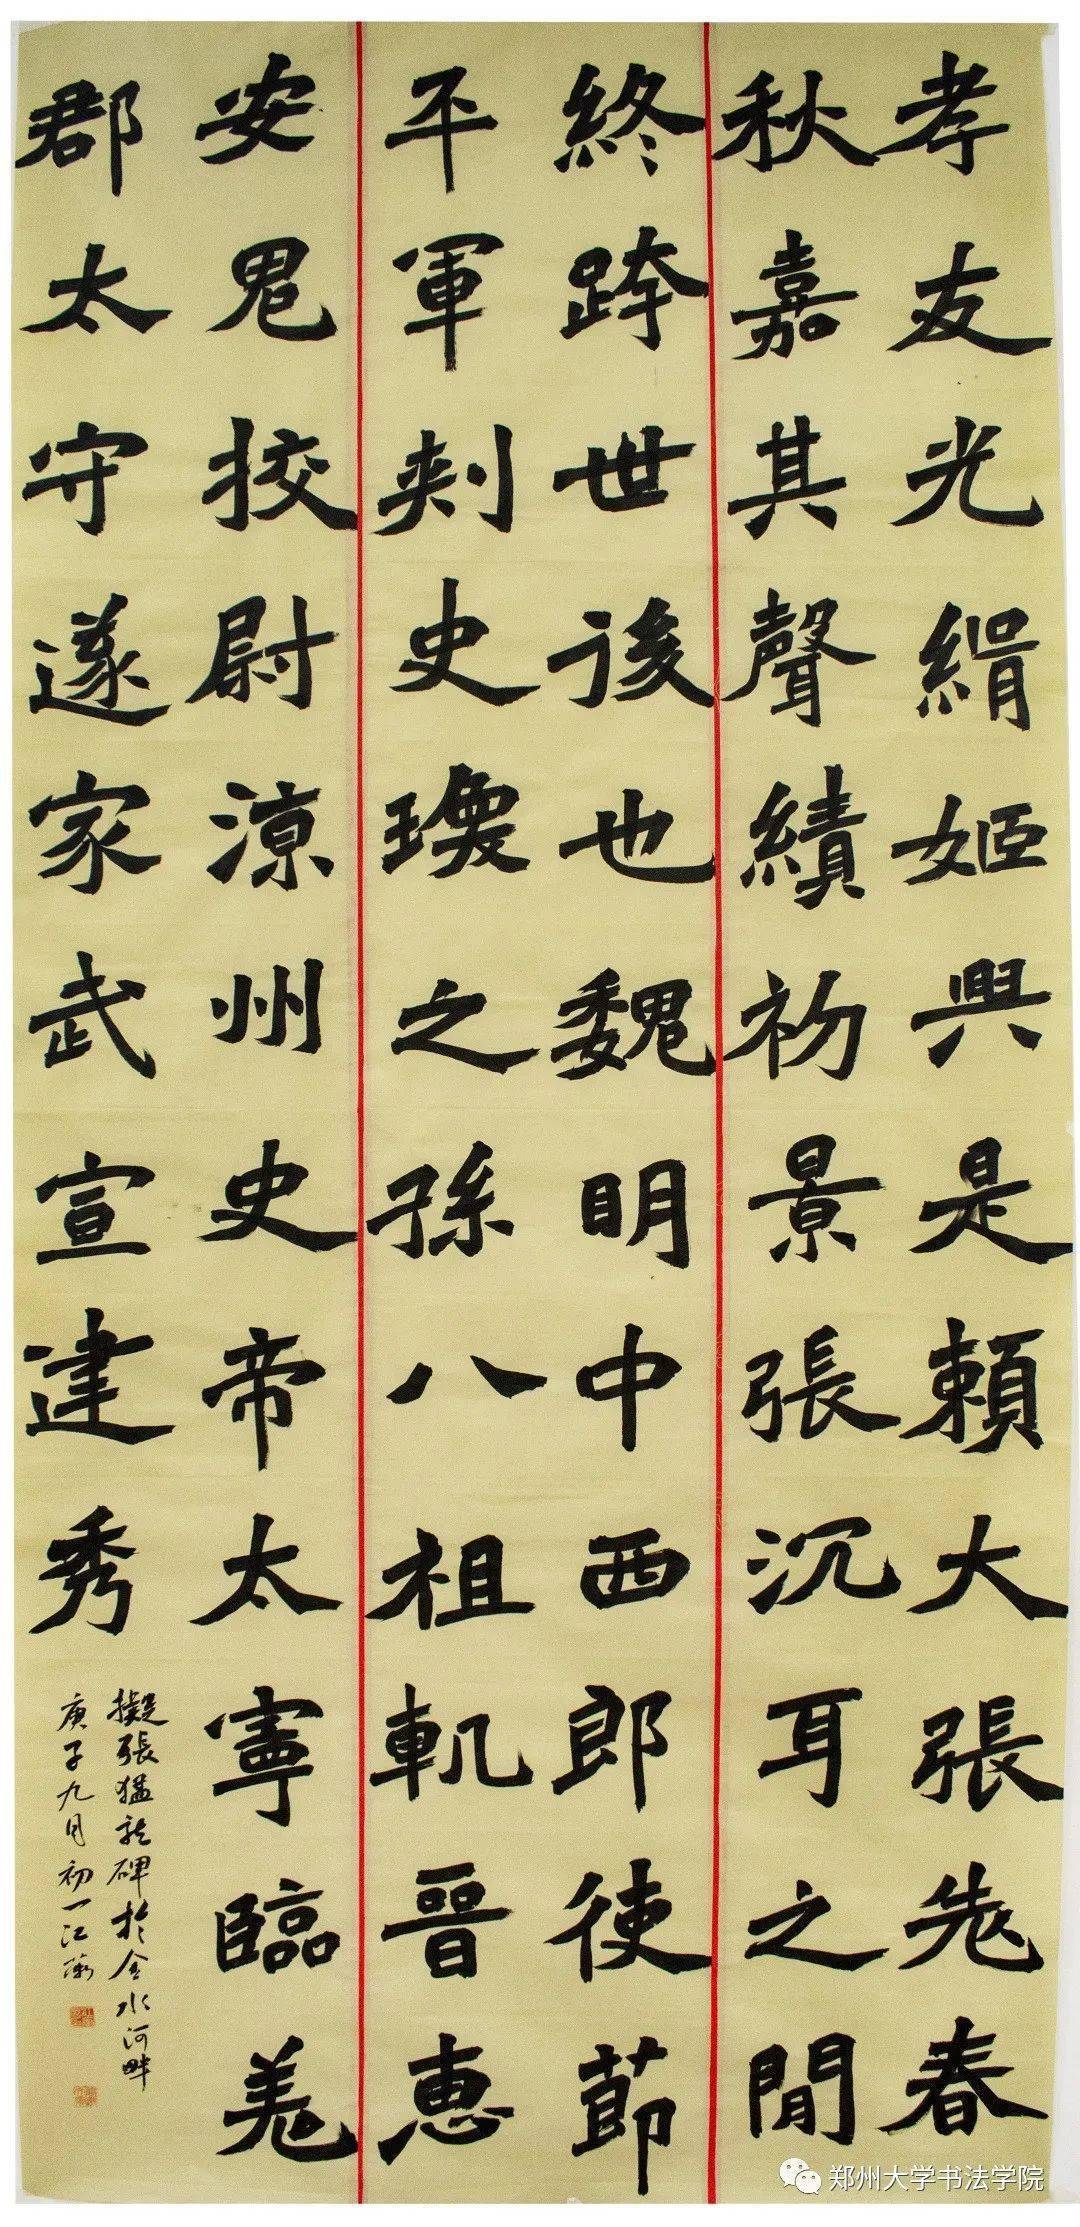 孝友光緝姬興是賴大張張老春
秋嘉其聲績初景張沉耳之間
終跨世後也魏明中西郎使節
平軍刾史瓊之孫八祖軌晉惠
安曵挍尉涼州史帝太寧臨羗
郡太守遂家武宣建秀
擬張猛龍碑於金水河畔
庚子九月初一江
郑州大学书法学院